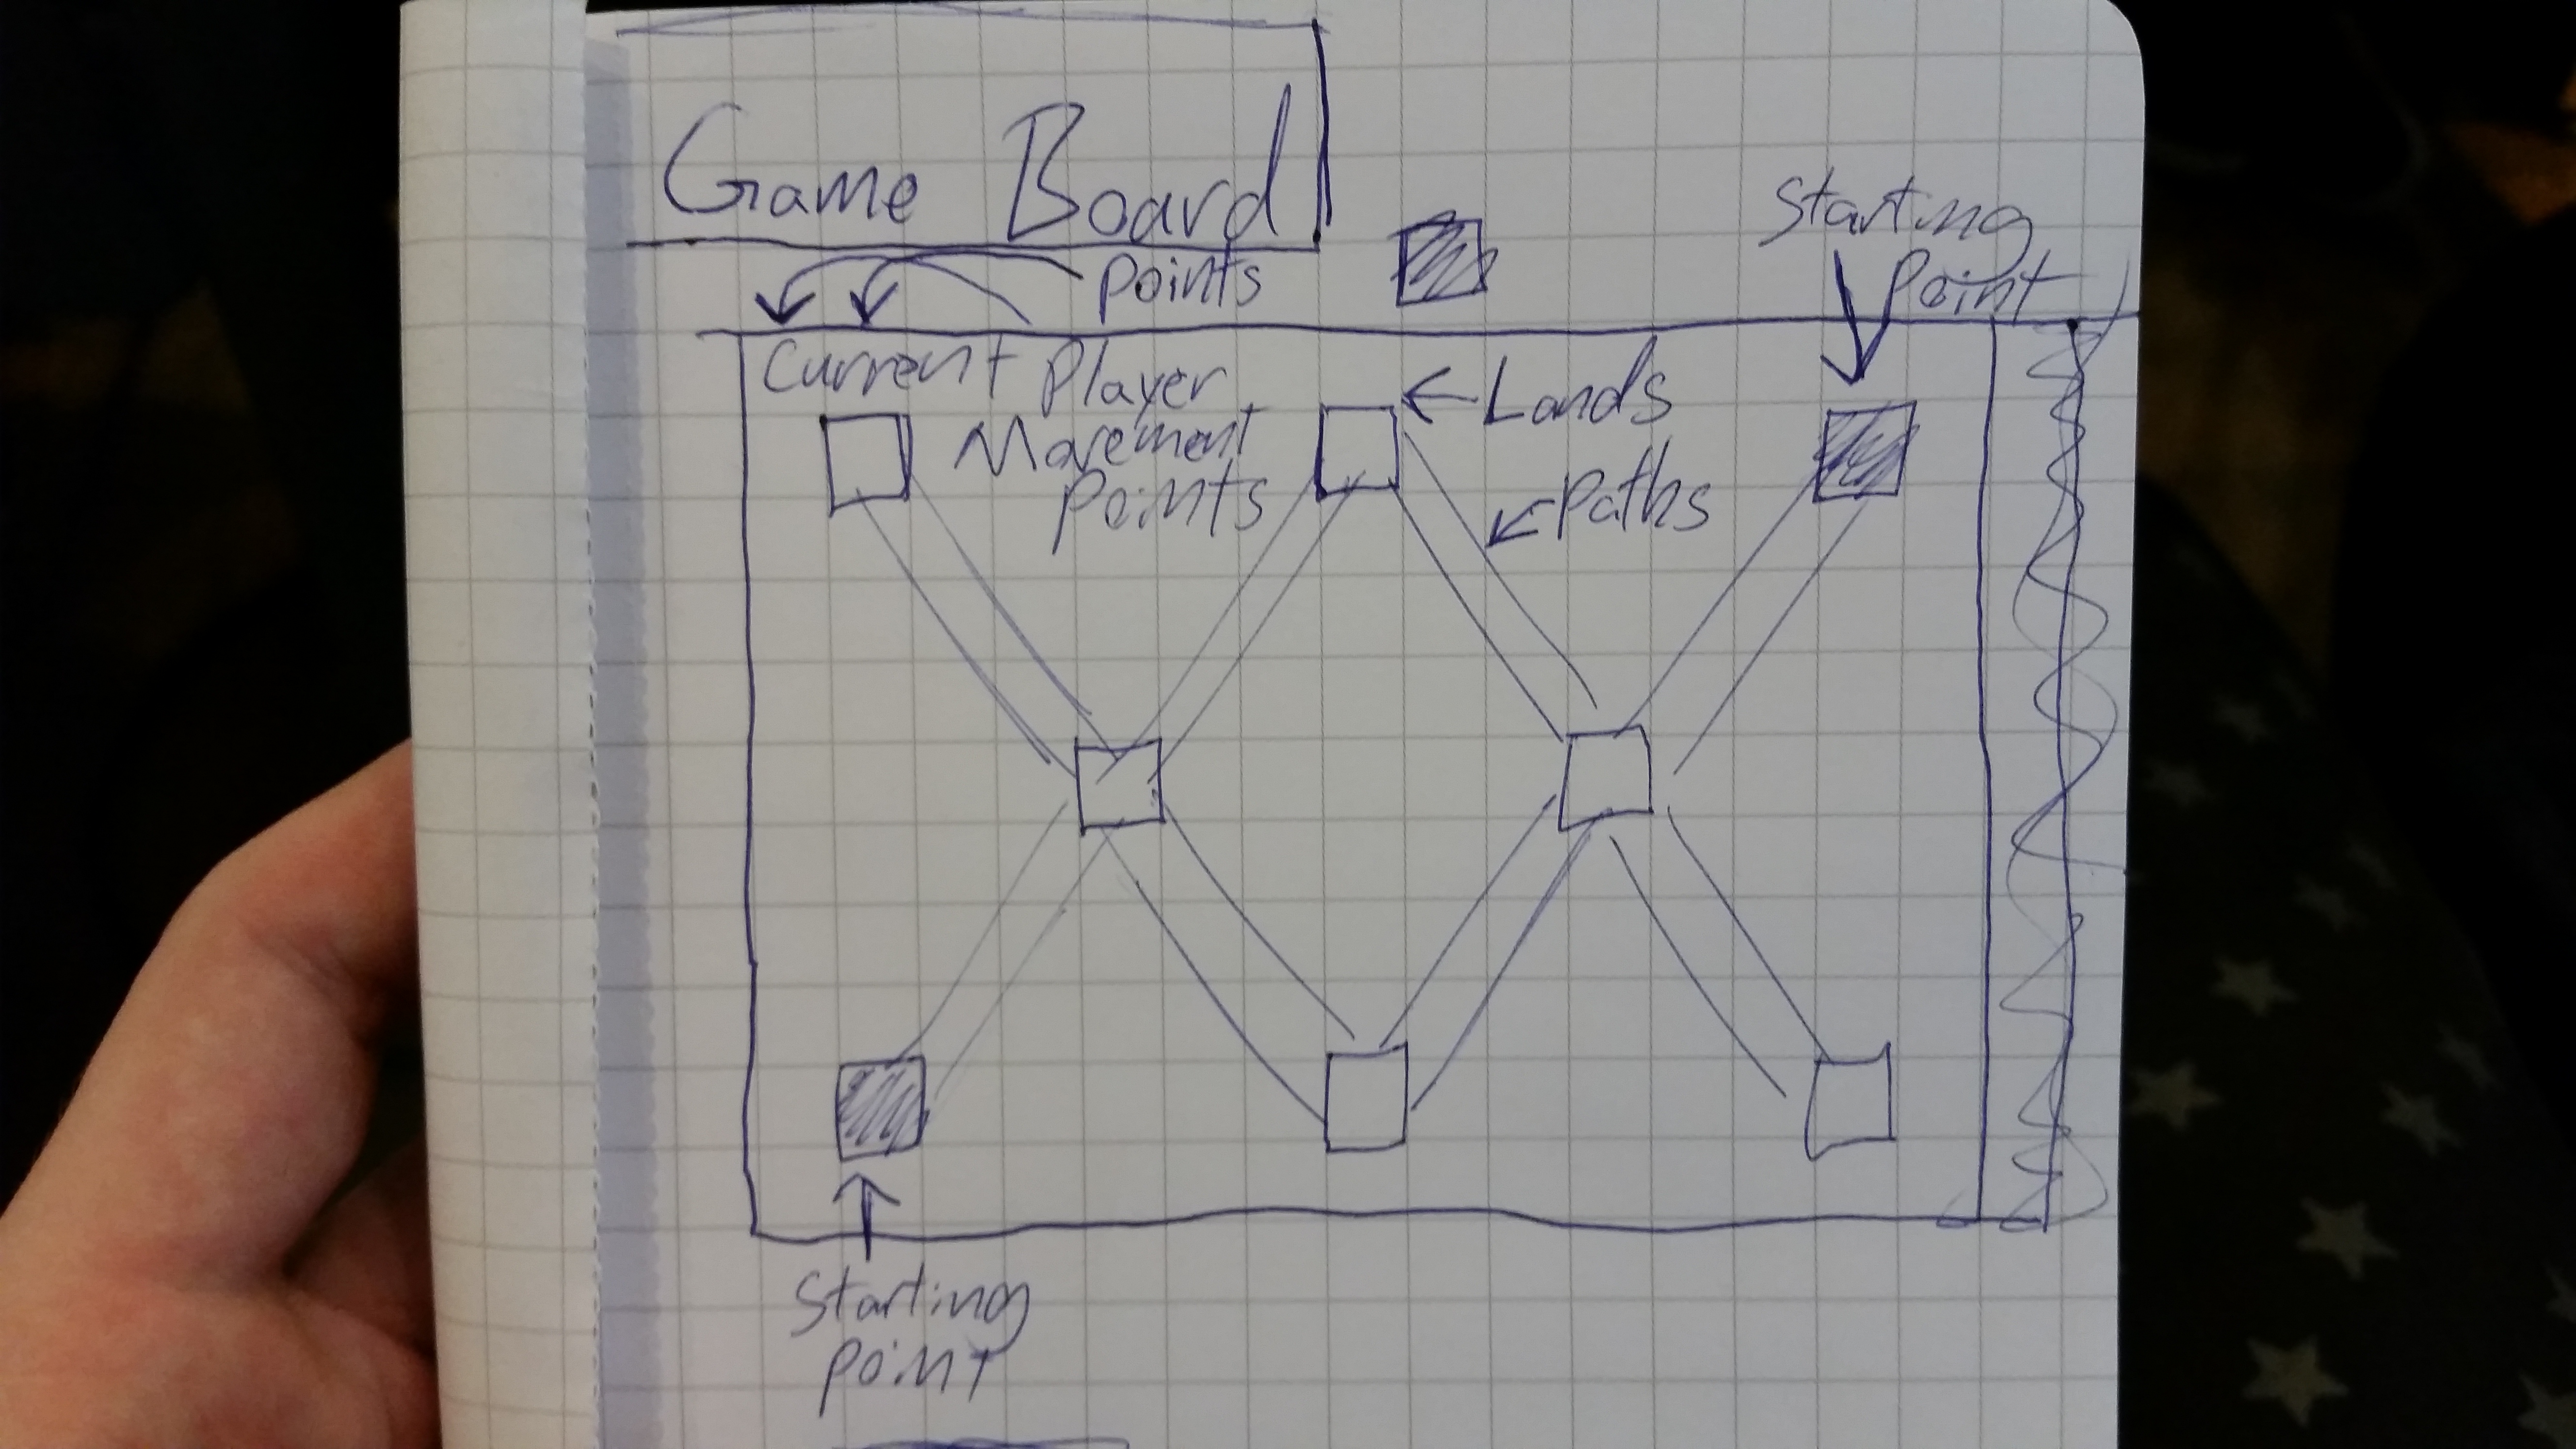 Game Board
Points
Starting
Point
Current Player
Movement
Points
Lands
Paths
Starting
Point